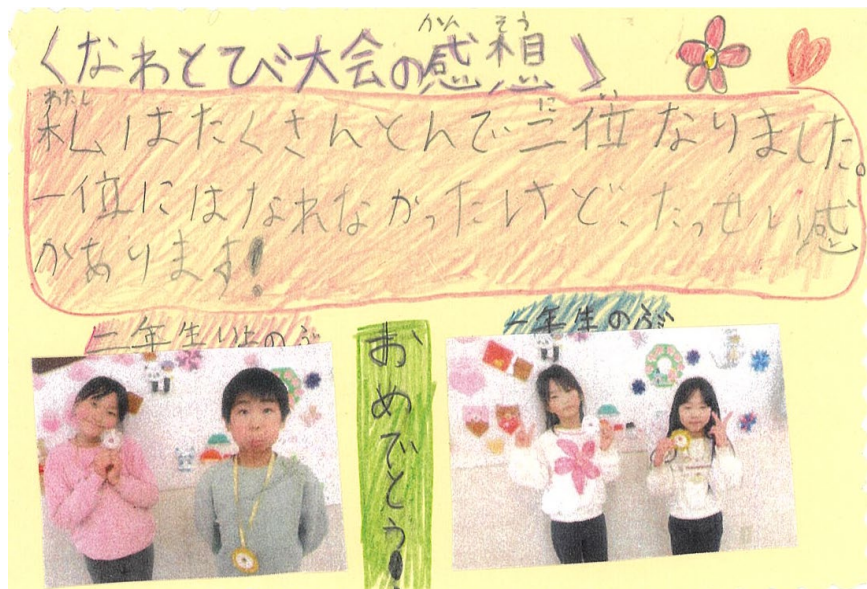 〈なわとび大会の感想〉
かん そう
わたし に い
私はたくさんとんで二位なりました。
一位にはなれなかったけど、たっせい感
があります!
二年生いものぶ
一年生のぶ
おめでとう!